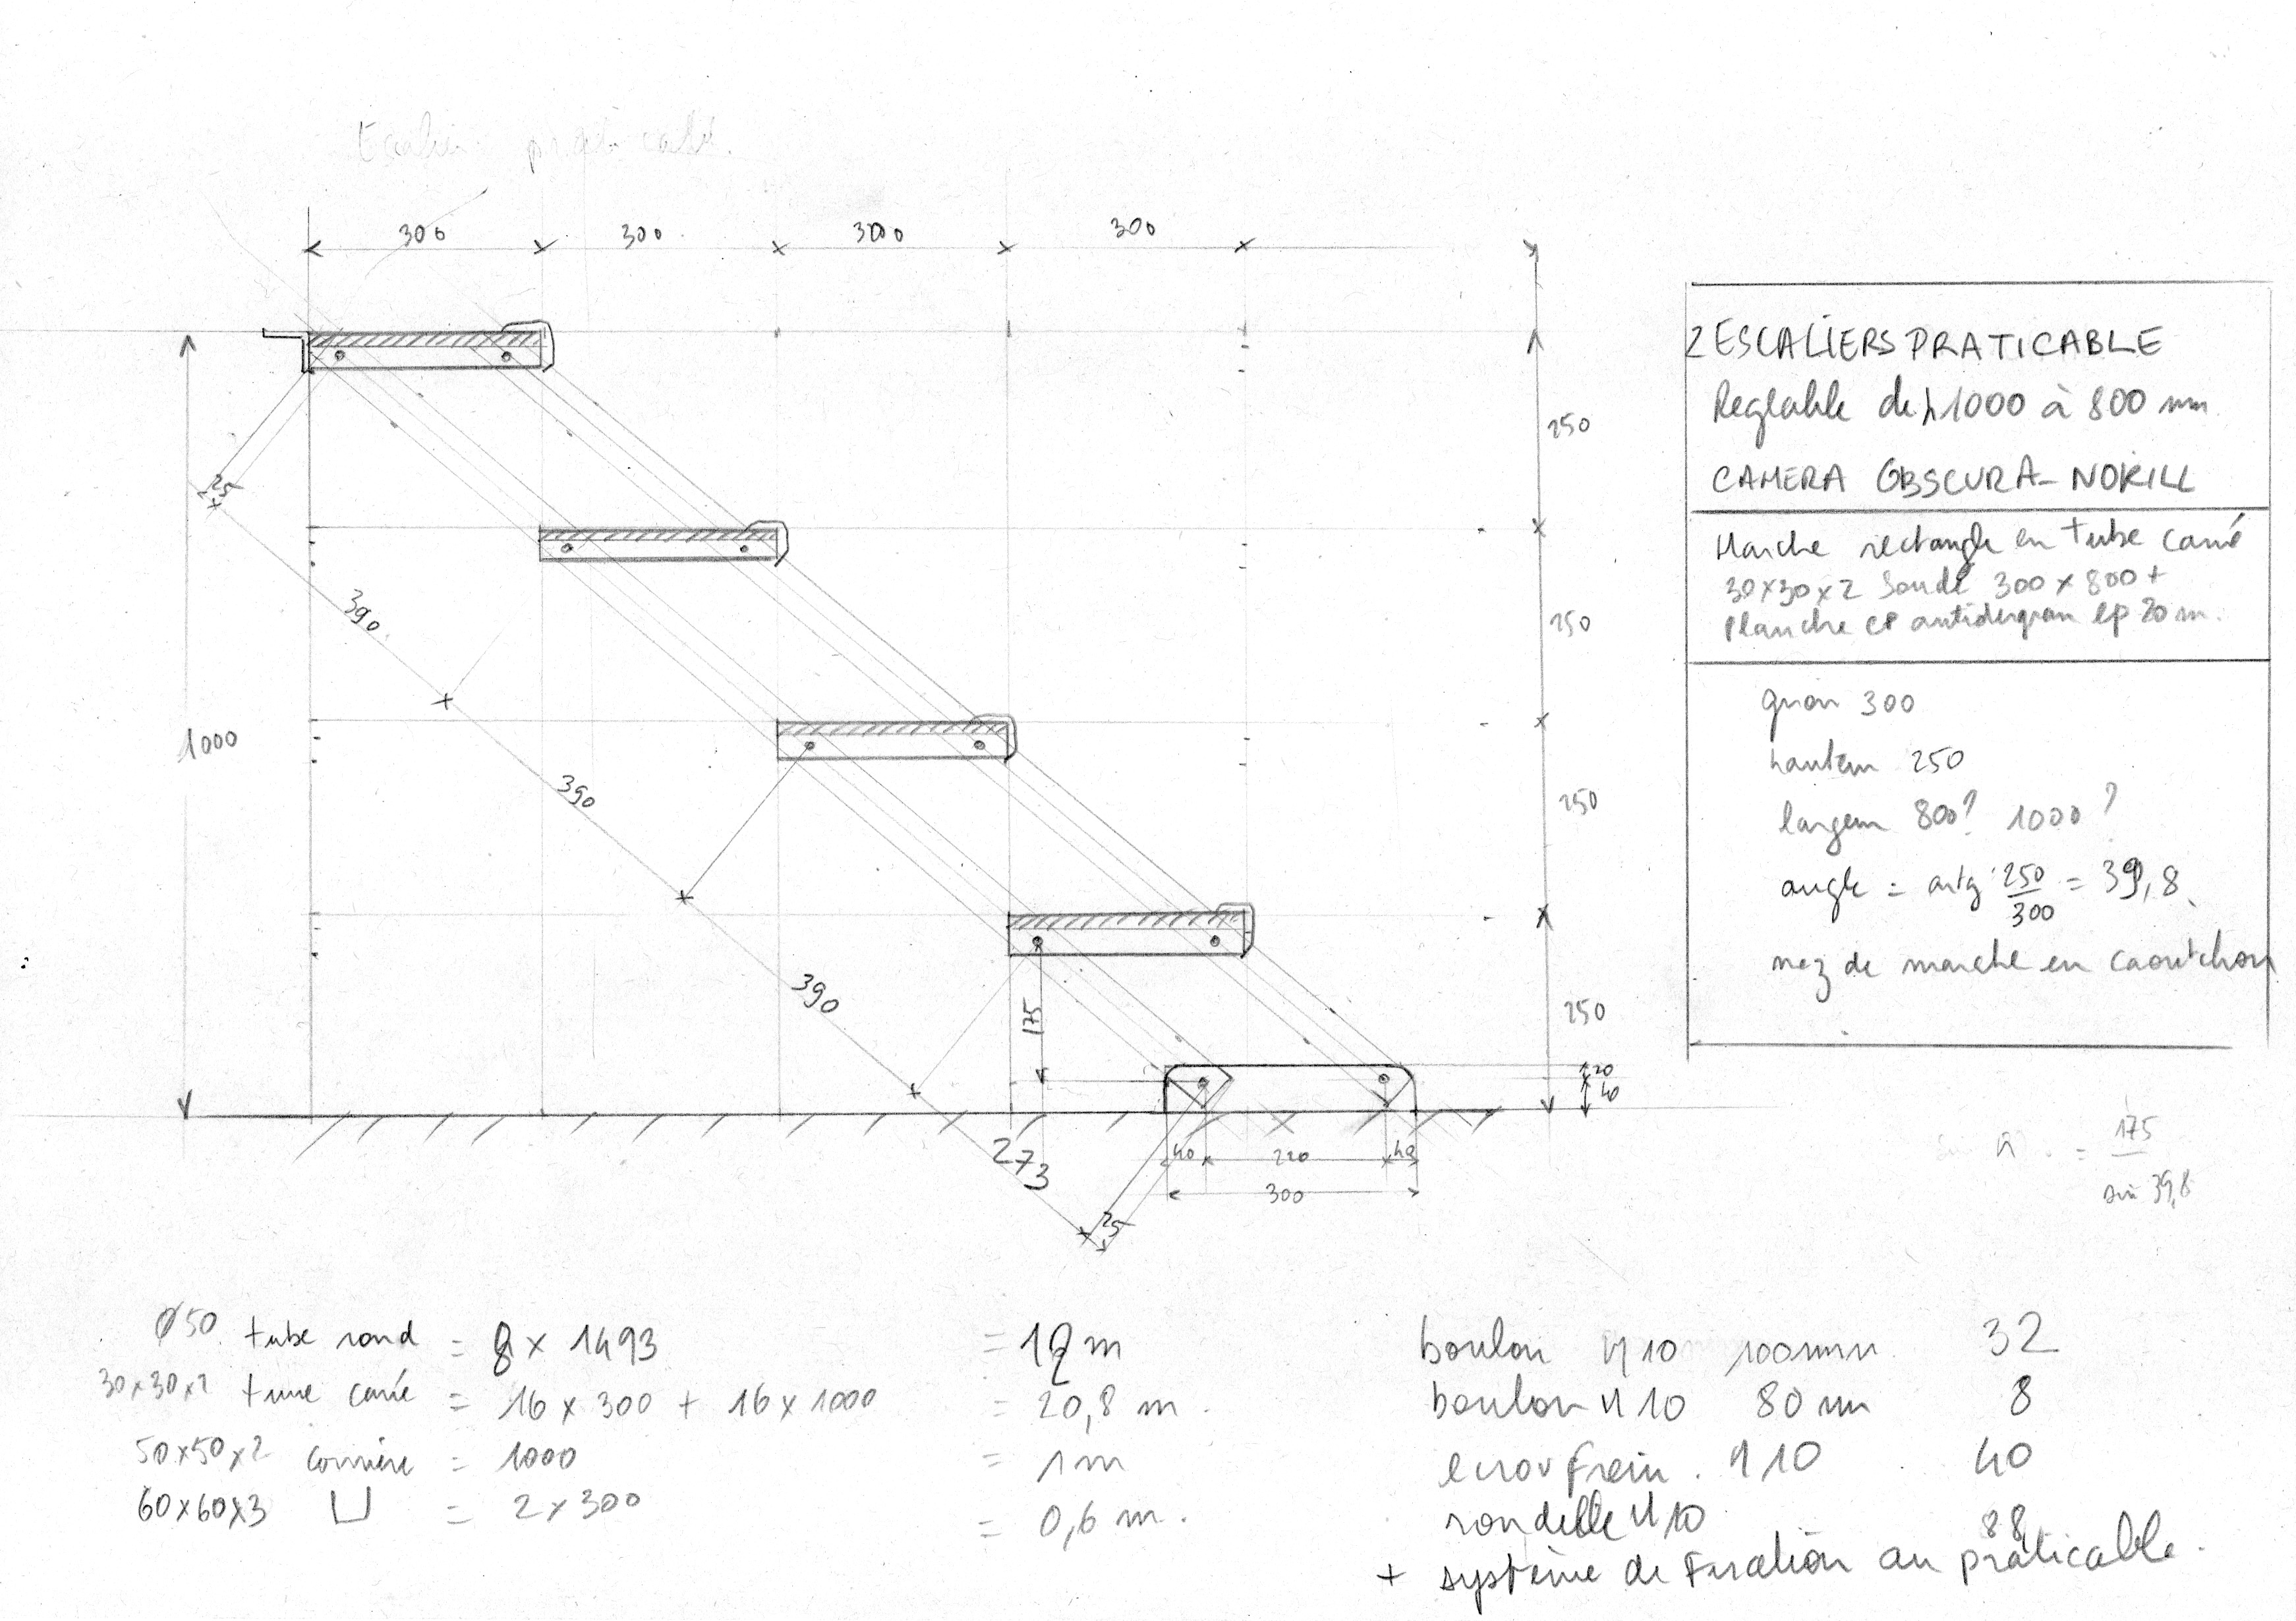 Escalier praticable.
300 300 300 300
250
250
250
250
20
40
1000
25
390
390
390
273
25
175
40 220 40
300
2 ESCALIERS PRATICABLE
Reglable de h 1000 à 800 mm
CAMERA OBSCURA - NOKILL
Marche rectangle en tube carré
30x30x2 Soudé 300 x 800 +
Planche CP antiderapan ep 20 m.
giron 300
hauteur 250
largeur 800? 1000?
angle = artg 250/300 = 39,8
nez de marche en caoutchou
= 175 / sin 39,8
Ø50 tube rond = 8 x 1493 = 12 m
30x30x2 tube carré = 16 x 300 + 16 x 1000 = 20,8 m.
50x50x2 cornière = 1000 = 1 m
60x60x3 U = 2 x 300 = 0,6 m.
boulon M10 100 mm 32
boulon M10 80 mm 8
ecrov frein. M10 40
rondelle M10 88
+ système de Fixation au praticable.